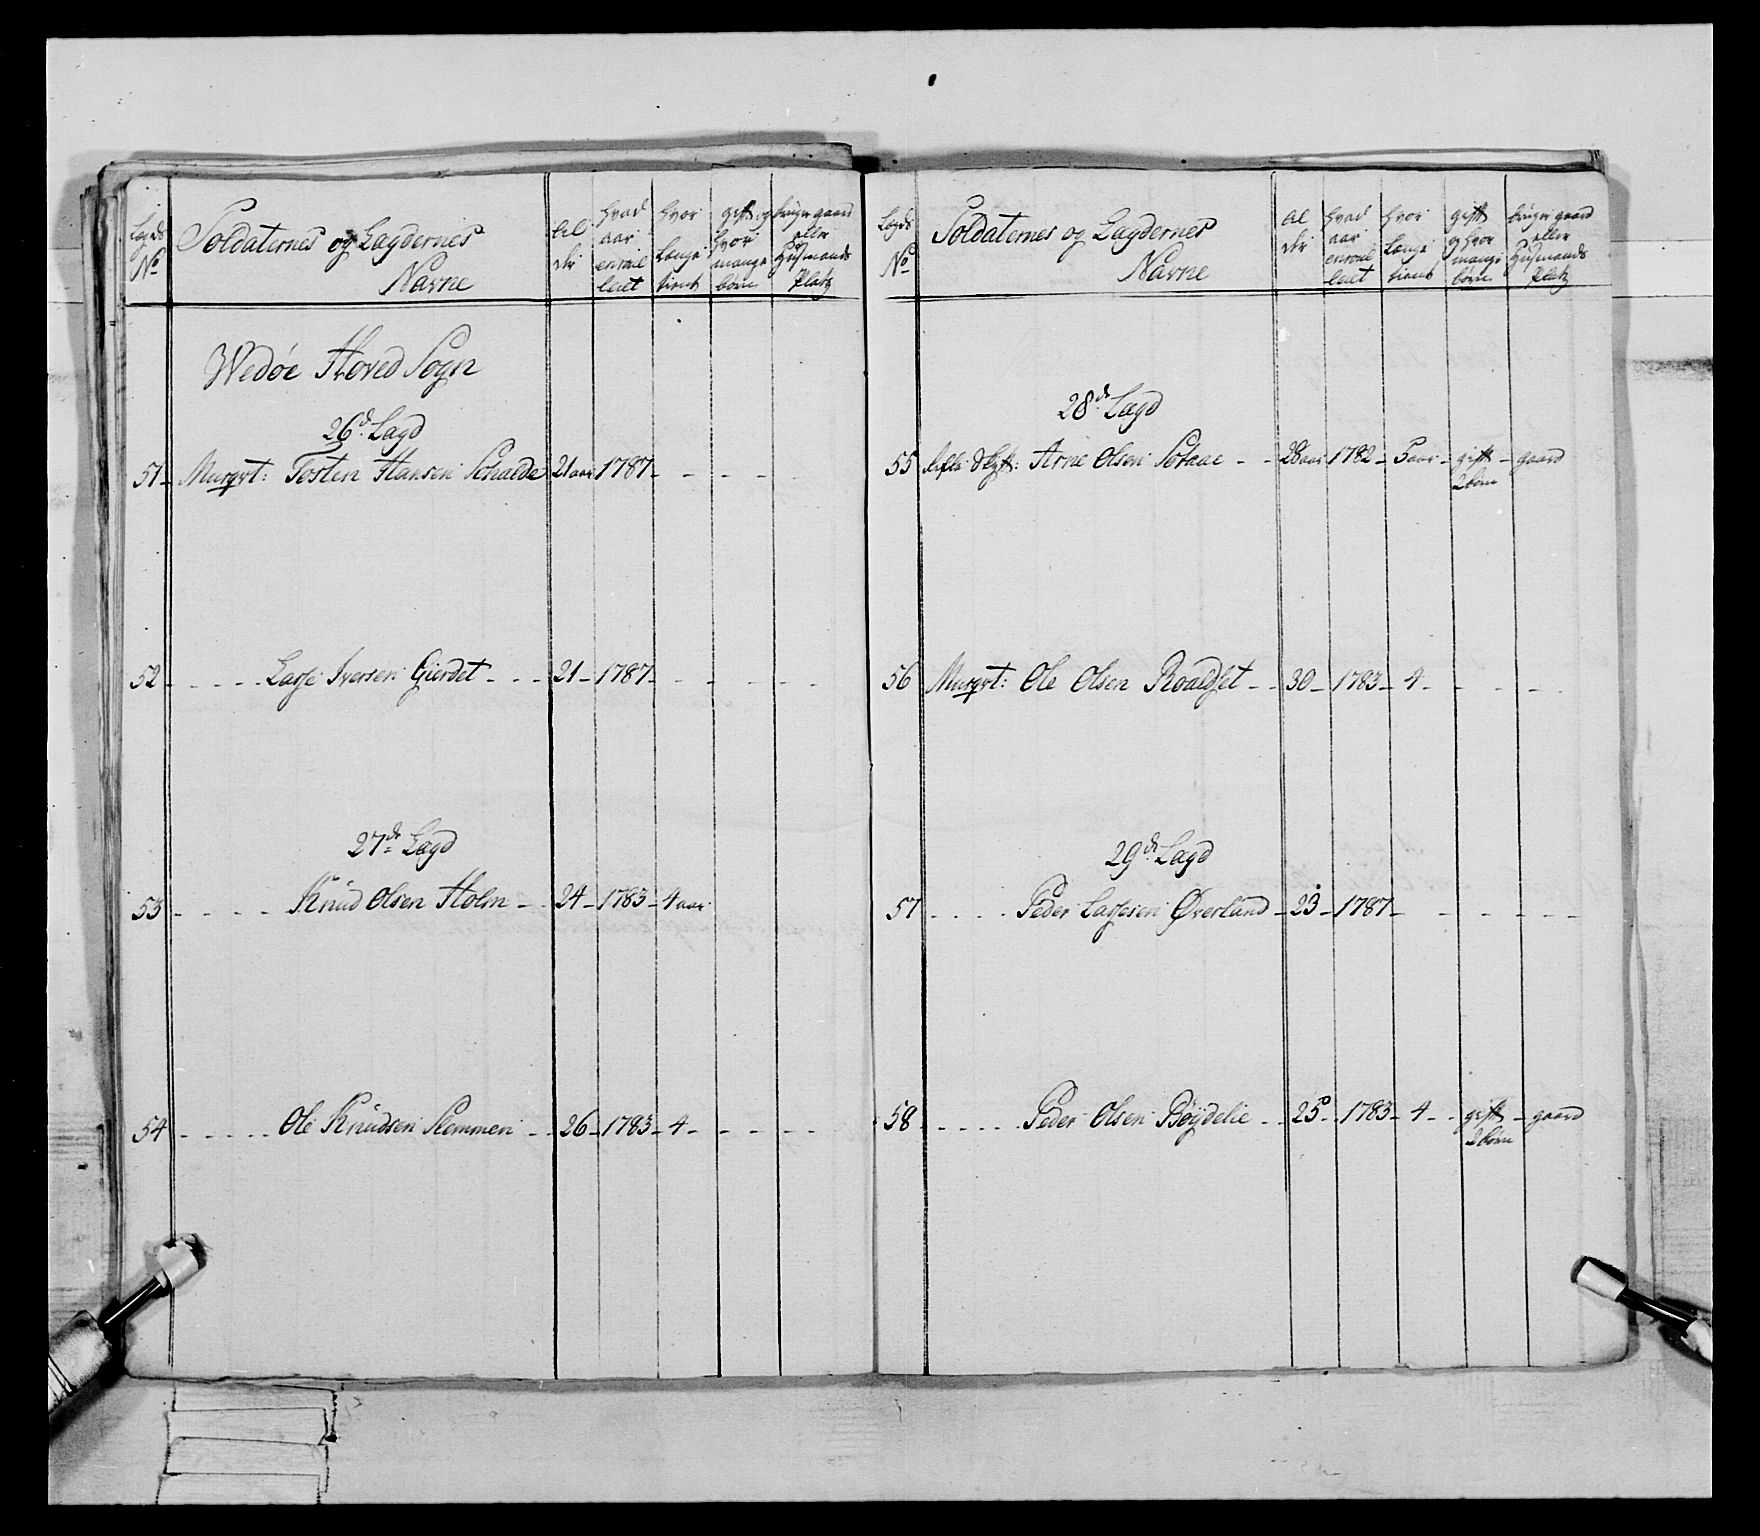 Lægds No
Soldaternes og Lægdernes Navne
al der
hvad aar enroul leret
hvor længe tient
gift og hvor mange børn
bruger gaard eller Husmands Platz
Wedøe Hoved Sogn
26de Lægd
51 - Musqvt: Tosten Hansen 21 aar 1787 - - - -
52 - - - - - Lasse Iversen Gierdet - - - 21 - 1787 - - - - - -
27de Lægd
53 - - - - Knud Olsen Holm - - 24 - 1783 - 4 aar
54 - - - - - Ole Knudsen Flemmen - - 26 - 1783 - 4 - - - - -
Lægds No
Soldaternes og Lægdernes Navne
al der
hvad aar enroul leret
hvor længe tient
gift og hvor mange børn
bruger gaard eller Husmands Platz
28de Lægd
55 Arne Olsen - - 28 aar 1782 - 5 aar - gift - gaard
2 børn
56 Musqvt: Ole Olsen Roaldset - - 30 - 1783 - 4 - - - - -
29de Lægd
57 - - - - Peder Lassesen Øverland - 23 - 1787 - - - - - -
58 - - - - - Peder Olsen Bøydelie - - 25 - 1783 - 4 - - gift - gaard
2 børn